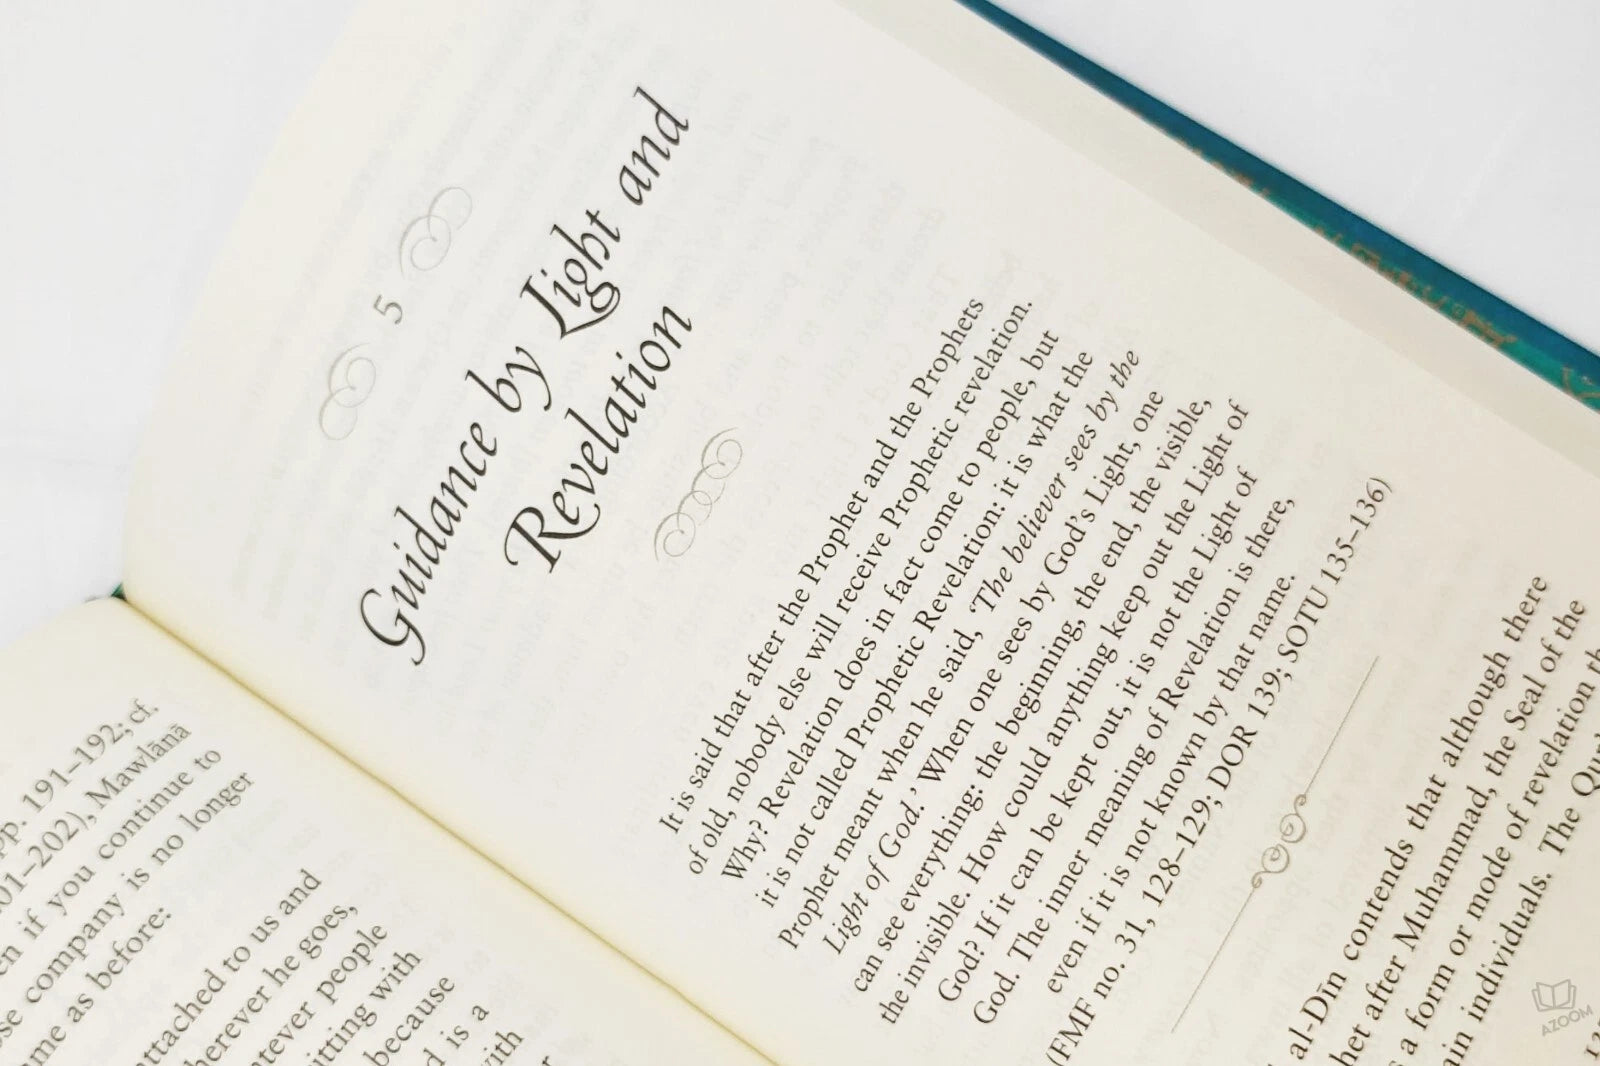 pp. 191–192; cf.
01–202), Mawlānā
en if you continue to
se company is no longer
me as before:
attached to us and
herever he goes,
atever people
itting with
because
d is a
with
5
Guidance by Light and
Revelation
It is said that after the Prophet and the Prophets
of old, nobody else will receive Prophetic revelation.
Why? Revelation does in fact come to people, but
it is not called Prophetic Revelation: it is what the
Prophet meant when he said, ‘The believer sees by the
Light of God.’ When one sees by God’s Light, one
can see everything: the beginning, the end, the visible,
the invisible. How could anything keep out the Light of
God? If it can be kept out, it is not the Light of
God. The inner meaning of Revelation is there,
even if it is not known by that name.
(FMF no. 31, 128–129; DOR 139; SOTU 135–136)
al-Dīn contends that although there
het after Muhammad, the Seal of the
s a form or mode of revelation
ain individuals. The
AZOOM